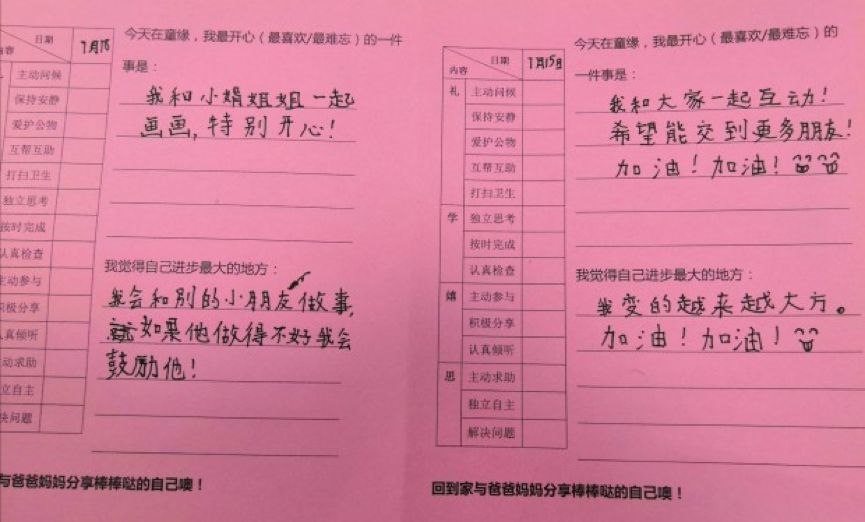 日期
内容
7月16
主动问候
保持安静
爱护公物
互帮互助
打扫卫生
独立思考
按时完成
认真检查
主动参与
积极分享
认真倾听
主动求助
独立自主
解决问题
今天在童缘，我最开心（最喜欢/最难忘）的一件
事是：
我和小娟姐姐一起
画画，特别开心！
我觉得自己进步最大的地方：
我会和别的小朋友做事，
如果他做得不好我会
鼓励他！
与爸爸妈妈分享棒棒哒的自己噢！
日期
内容
7月15日
礼 主动问候
保持安静
爱护公物
互帮互助
打扫卫生
学 独立思考
按时完成
认真检查
嬉 主动参与
积极分享
认真倾听
思 主动求助
独立自主
解决问题
今天在童缘，我最开心（最喜欢/最难忘）的
一件事是：
我和大家一起互动！
希望能交到更多朋友！
加油！加油！
我觉得自己进步最大的地方：
我变的越来越大方。
加油！加油！
回到家与爸爸妈妈分享棒棒哒的自己噢！